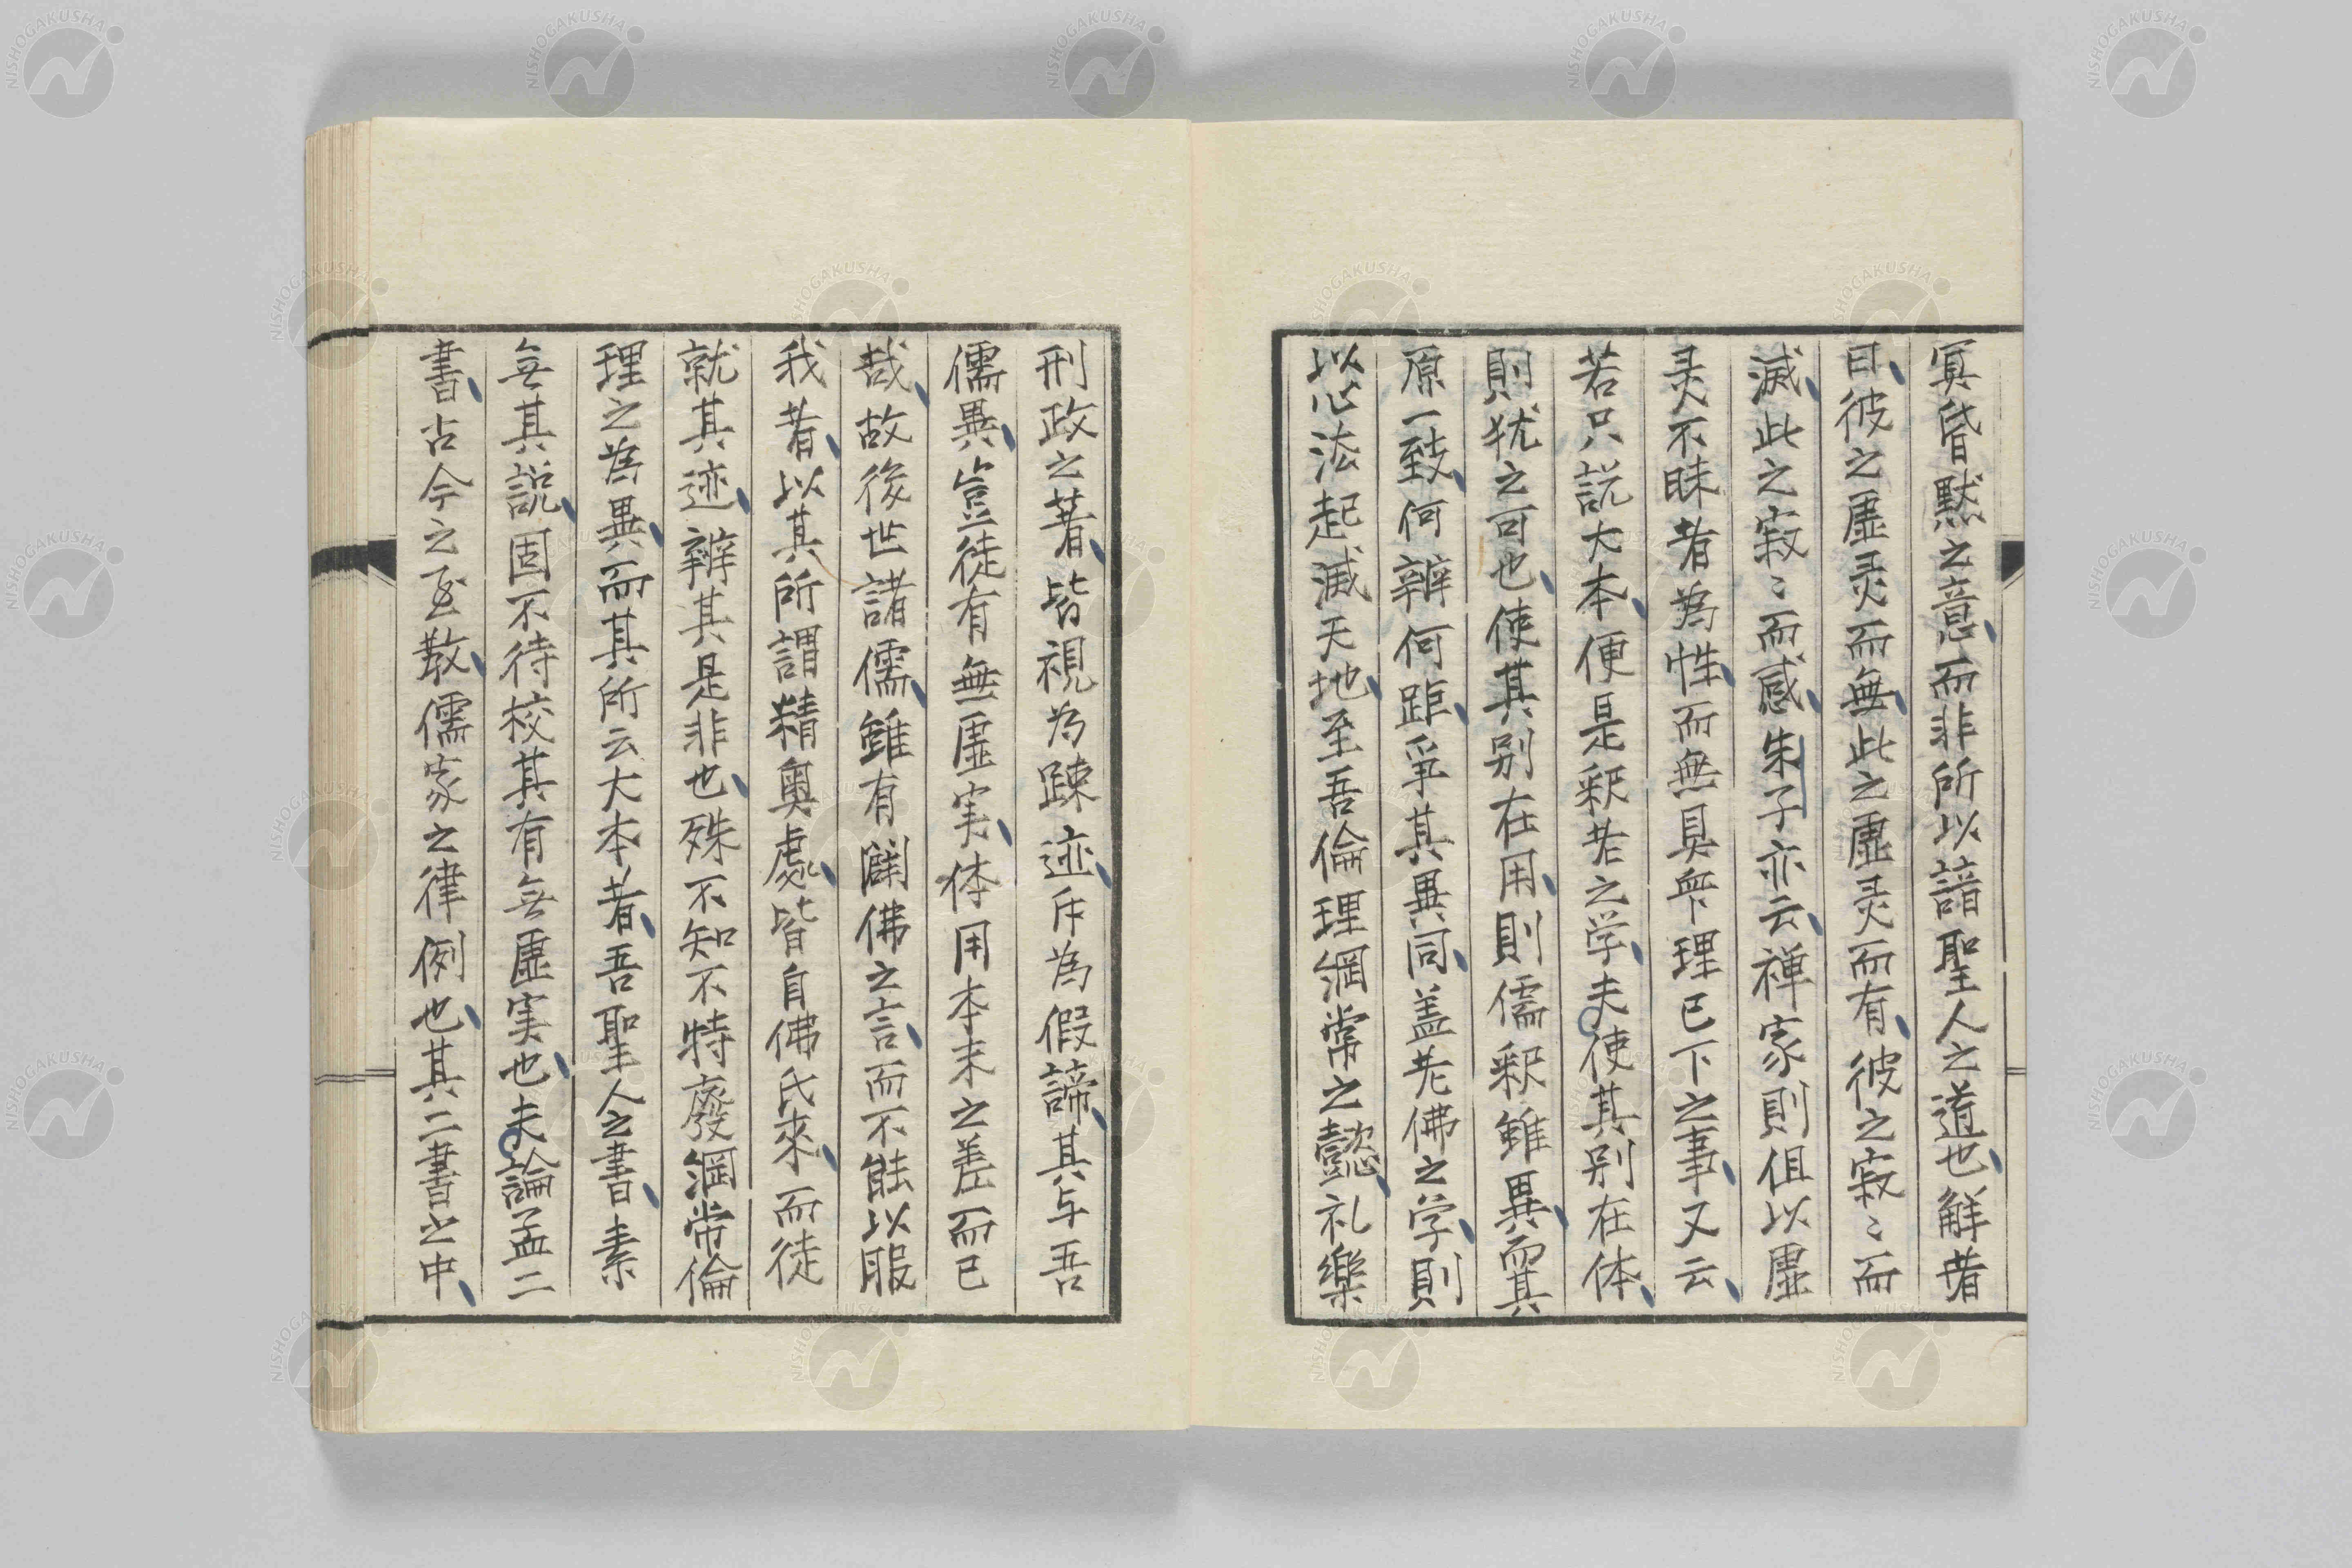 冥昏黙之意而非所以諳聖人之道也鮮者
曰彼之虚灵而無此之虚灵而有彼之寂〻而
滅此之寂〻而感朱子亦云禅家則但以虚
灵不昧者為性而無具衆理已下之事又云
若只説大本便是釈老之学夫使其别在体
則犹之可也使其别在用則儒釈雖異而其
原一致何辨何距爭其異同盖老佛之学則
以心法起滅天地至吾倫理綱常之懿礼樂
刑政之著皆視為踈迹斥為假諦其与吾
儒異豈徒有無虚実体用本末之差而已
哉故後世諸儒雖有闢佛之言而不能以服
我者以其所謂精奥處皆自佛氏來而徒
就其迹辨其是非也殊不知不特廢綱常倫
理之為異而其所云大本者吾聖人之書素
無其説固不待校其有無虚実也夫論孟二
書古今之至教儒家之律例也其二書之中
NISHOGAKUSHA